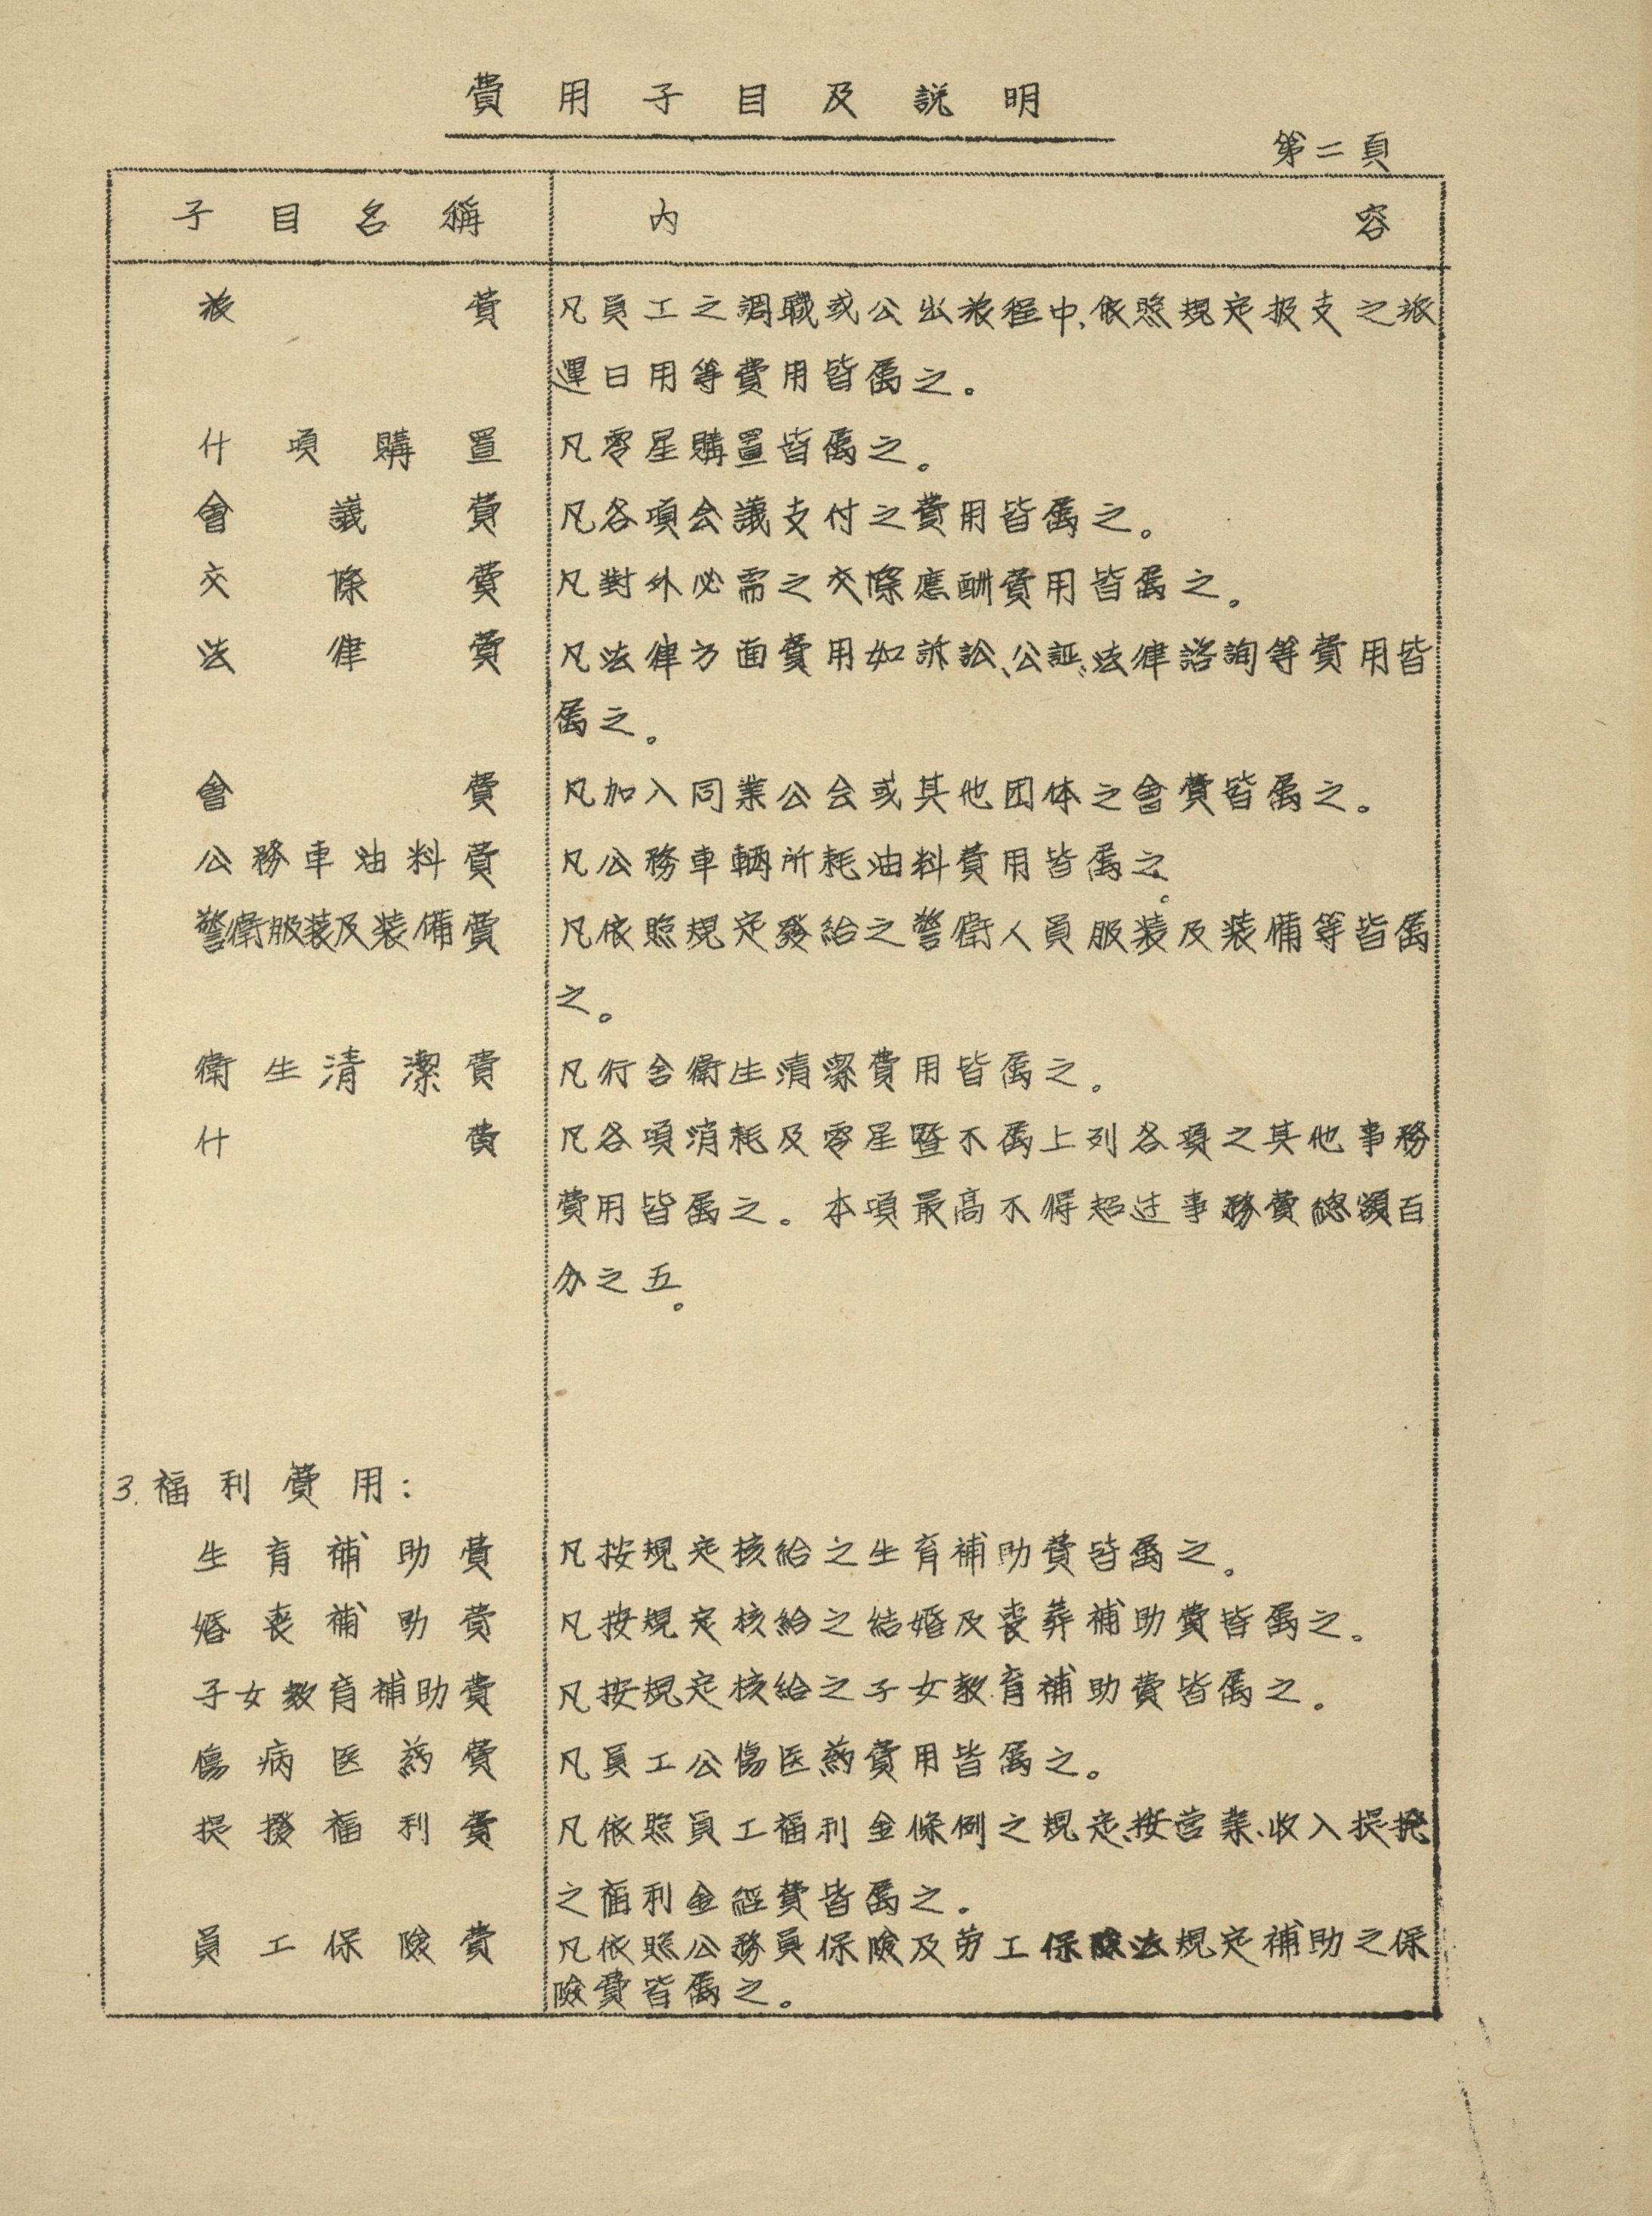 費用子目及説明
第二頁
子目名稱 內容
旅費 凡員工之調職或公出旅程中、依照規定报支之旅
運日用等費用皆屬之。
什項購置 凡零星購置皆屬之。
會議費 凡各項会議支付之費用皆屬之。
交際費 凡對外必需之交際應酬費用皆屬之。
法律費 凡法律方面費用如訴訟、公証、法律諮詢等費用皆
屬之。
會費 凡加入同業公会或其他团体之會費皆屬之。
公務車油料費 凡公務車輛所耗油料費用皆屬之。
警衛服裝及裝備費 凡依照規定發給之警衛人員服裝及裝備等皆屬
之。
衛生清潔費 凡行舍衛生清潔費用皆屬之。
什費 凡各項消耗及零星暨不屬上列各項之其他事務
費用皆屬之。本項最高不得超过事務費總額百
分之五。
3.福利費用：
生育補助費 凡按規定核給之生育補助費皆屬之。
婚喪補助費 凡按規定核給之結婚及喪葬補助費皆屬之。
子女教育補助費 凡按規定核給之子女教育補助費皆屬之。
傷病医葯費 凡員工公傷医葯費用皆屬之。
提撥福利費 凡依照員工福利金條例之規定、按营業、收入提撥
之福利金經費皆屬之。
員工保險費 凡依照公務員保險及劳工保險法規定補助之保
險費皆屬之。